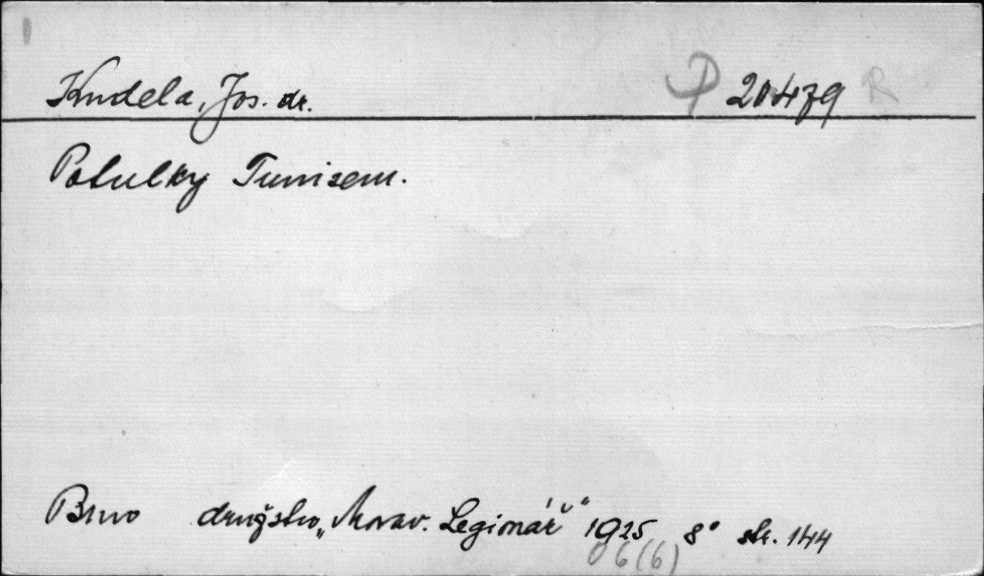 Kudela, Jos. dr. P 20479 R
Potulky Tunisem.
Brno družstvo „Morav. Legionář“ 1925 8° str. 144
6(6)